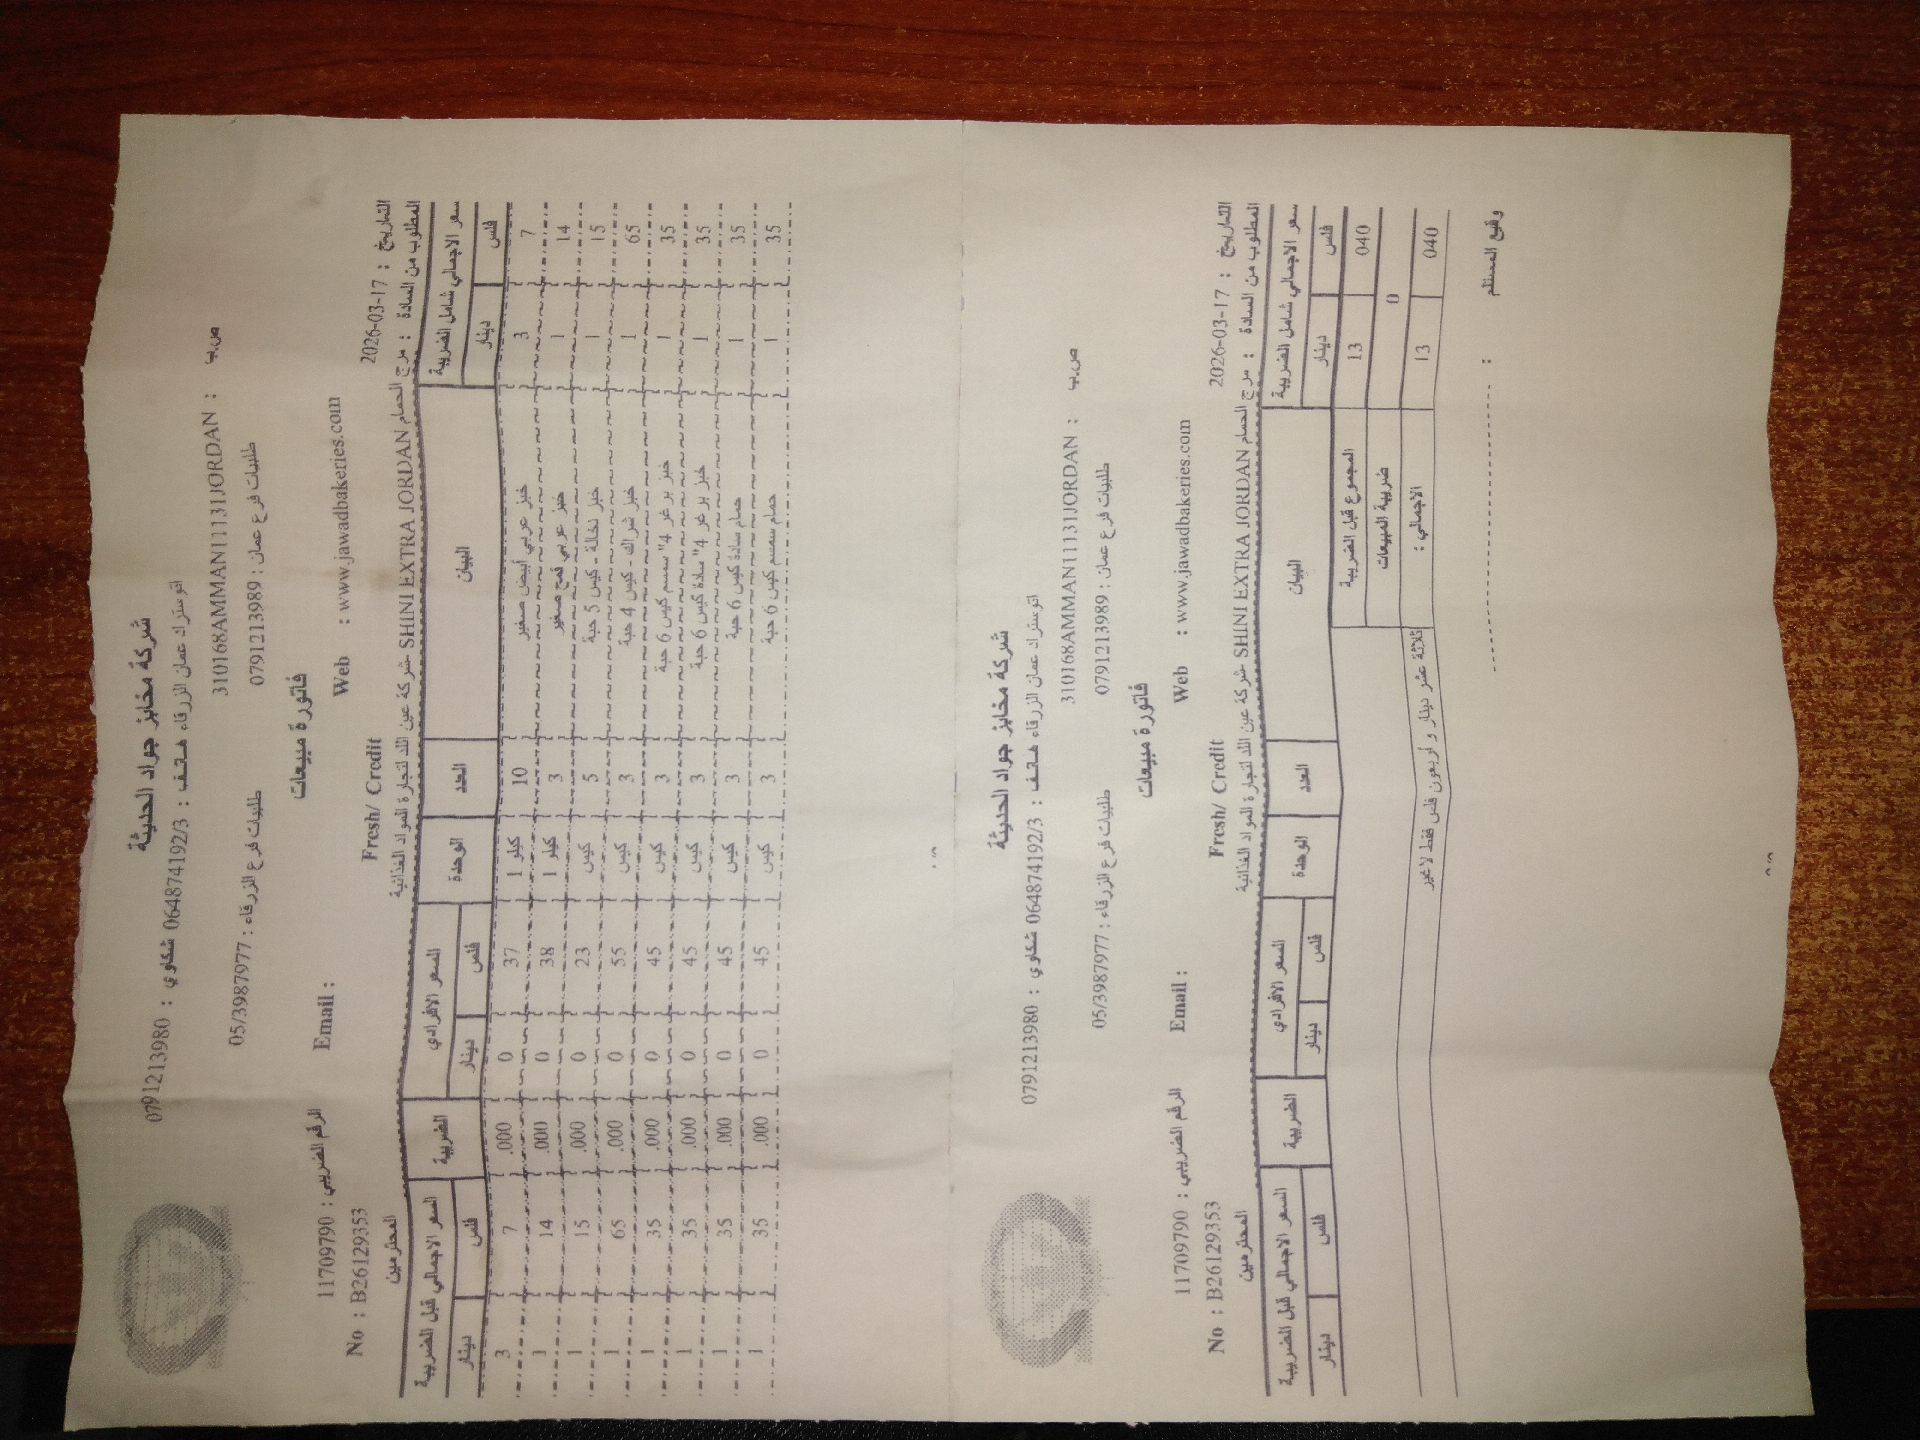 شركة مخابز جواد الحديثة
اتوستراد عمان الزرقاء هاتف : 064874192/3 شكاوي : 0791213980
ص.ب : 310168AMMAN11131JORDAN
طلبيات فرع عمان : 0791213989 طلبيات فرع الزرقاء : 05/3987977
فاتورة مبيعات
Web : www.jawadbakeries.com Email : الرقم الضريبي : 11709790
التاريخ : 2026-03-17 Fresh/ Credit No : B26129353
المطلوب من السادة : مرج الحمام SHINI EXTRA JORDAN -شركة عين اللد لتجارة المواد الغذائية المحترمين
سعر الاجمالي شامل الضريبة البيان العدد الوحدة السعر الافرادي الضريبة السعر الاجمالي قبل الضريبة
فلس دينار فلس دينار فلس دينار
7 3 خبز عربي أبيض صغير 10 كيلو 1 37 0 .000 7 3
14 1 خبز عربي قمح صغير 3 كيلو 1 38 0 .000 14 1
15 1 خبز نخالة - كيس 5 حبة 5 كيس 23 0 .000 15 1
65 1 خبز شراك - كيس 4 حبة 3 كيس 55 0 .000 65 1
35 1 خبز برغر 4" سمسم كيس 6 حبة 3 كيس 45 0 .000 35 1
35 1 خبز برغر 4" سادة كيس 6 حبة 3 كيس 45 0 .000 35 1
35 1 حمام سادة كيس 6 حبة 3 كيس 45 0 .000 35 1
35 1 حمام سمسم كيس 6 حبة 3 كيس 45 0 .000 35 1
شركة مخابز جواد الحديثة
اتوستراد عمان الزرقاء هاتف : 064874192/3 شكاوي : 0791213980
ص.ب : 310168AMMAN11131JORDAN
طلبيات فرع عمان : 0791213989 طلبيات فرع الزرقاء : 05/3987977
فاتورة مبيعات
Web : www.jawadbakeries.com Email : الرقم الضريبي : 11709790
التاريخ : 2026-03-17 Fresh/ Credit No : B26129353
المطلوب من السادة : مرج الحمام SHINI EXTRA JORDAN -شركة عين اللد لتجارة المواد الغذائية المحترمين
سعر الاجمالي شامل الضريبة البيان العدد الوحدة السعر الافرادي الضريبة السعر الاجمالي قبل الضريبة
فلس دينار فلس دينار فلس دينار
040 13 المجموع قبل الضريبة
0 ضريبة المبيعات
040 13 الاجمالي : ثلاثة عشر دينار و اربعون فلس فقط لا غير
وقع المستلم :